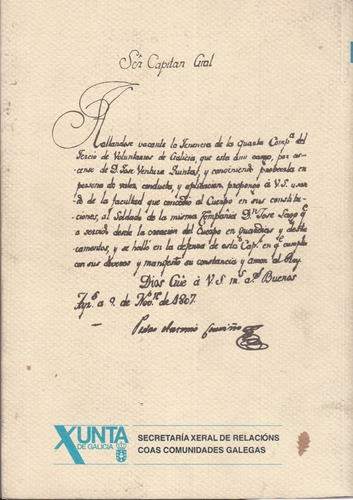 Sór Capitan Gral
Hallandose vacante la Tenencia de la Quarta Compª del
Tercio de Voluntarios de Galicia, que esta á mi cargo, por as-
censo de D. Jose Ventura Quintas, y conviniendo proveerla en
persona de valor, conducta, y aplicacion, propongo á V.S. usan-
do de la facultad que concedio al Cuerpo en sus constitu-
ciones, al Soldado de la misma compañia Dn Jose
á servido desde la creacion del Cuerpo en guardias y desta-
camentos, y se halló en la defensa de esta Capl en qe cumplio
con sus deveres y manifesto su constancia y amor al Rey.
Dios Gûe á V.S. ms as Buenos
Ays á 9 de Novre de 1807.
Pedro Antonio Cerviño
XUNTA
DE GALICIA
SECRETARÍA XERAL DE RELACIÓNS
COAS COMUNIDADES GALEGAS